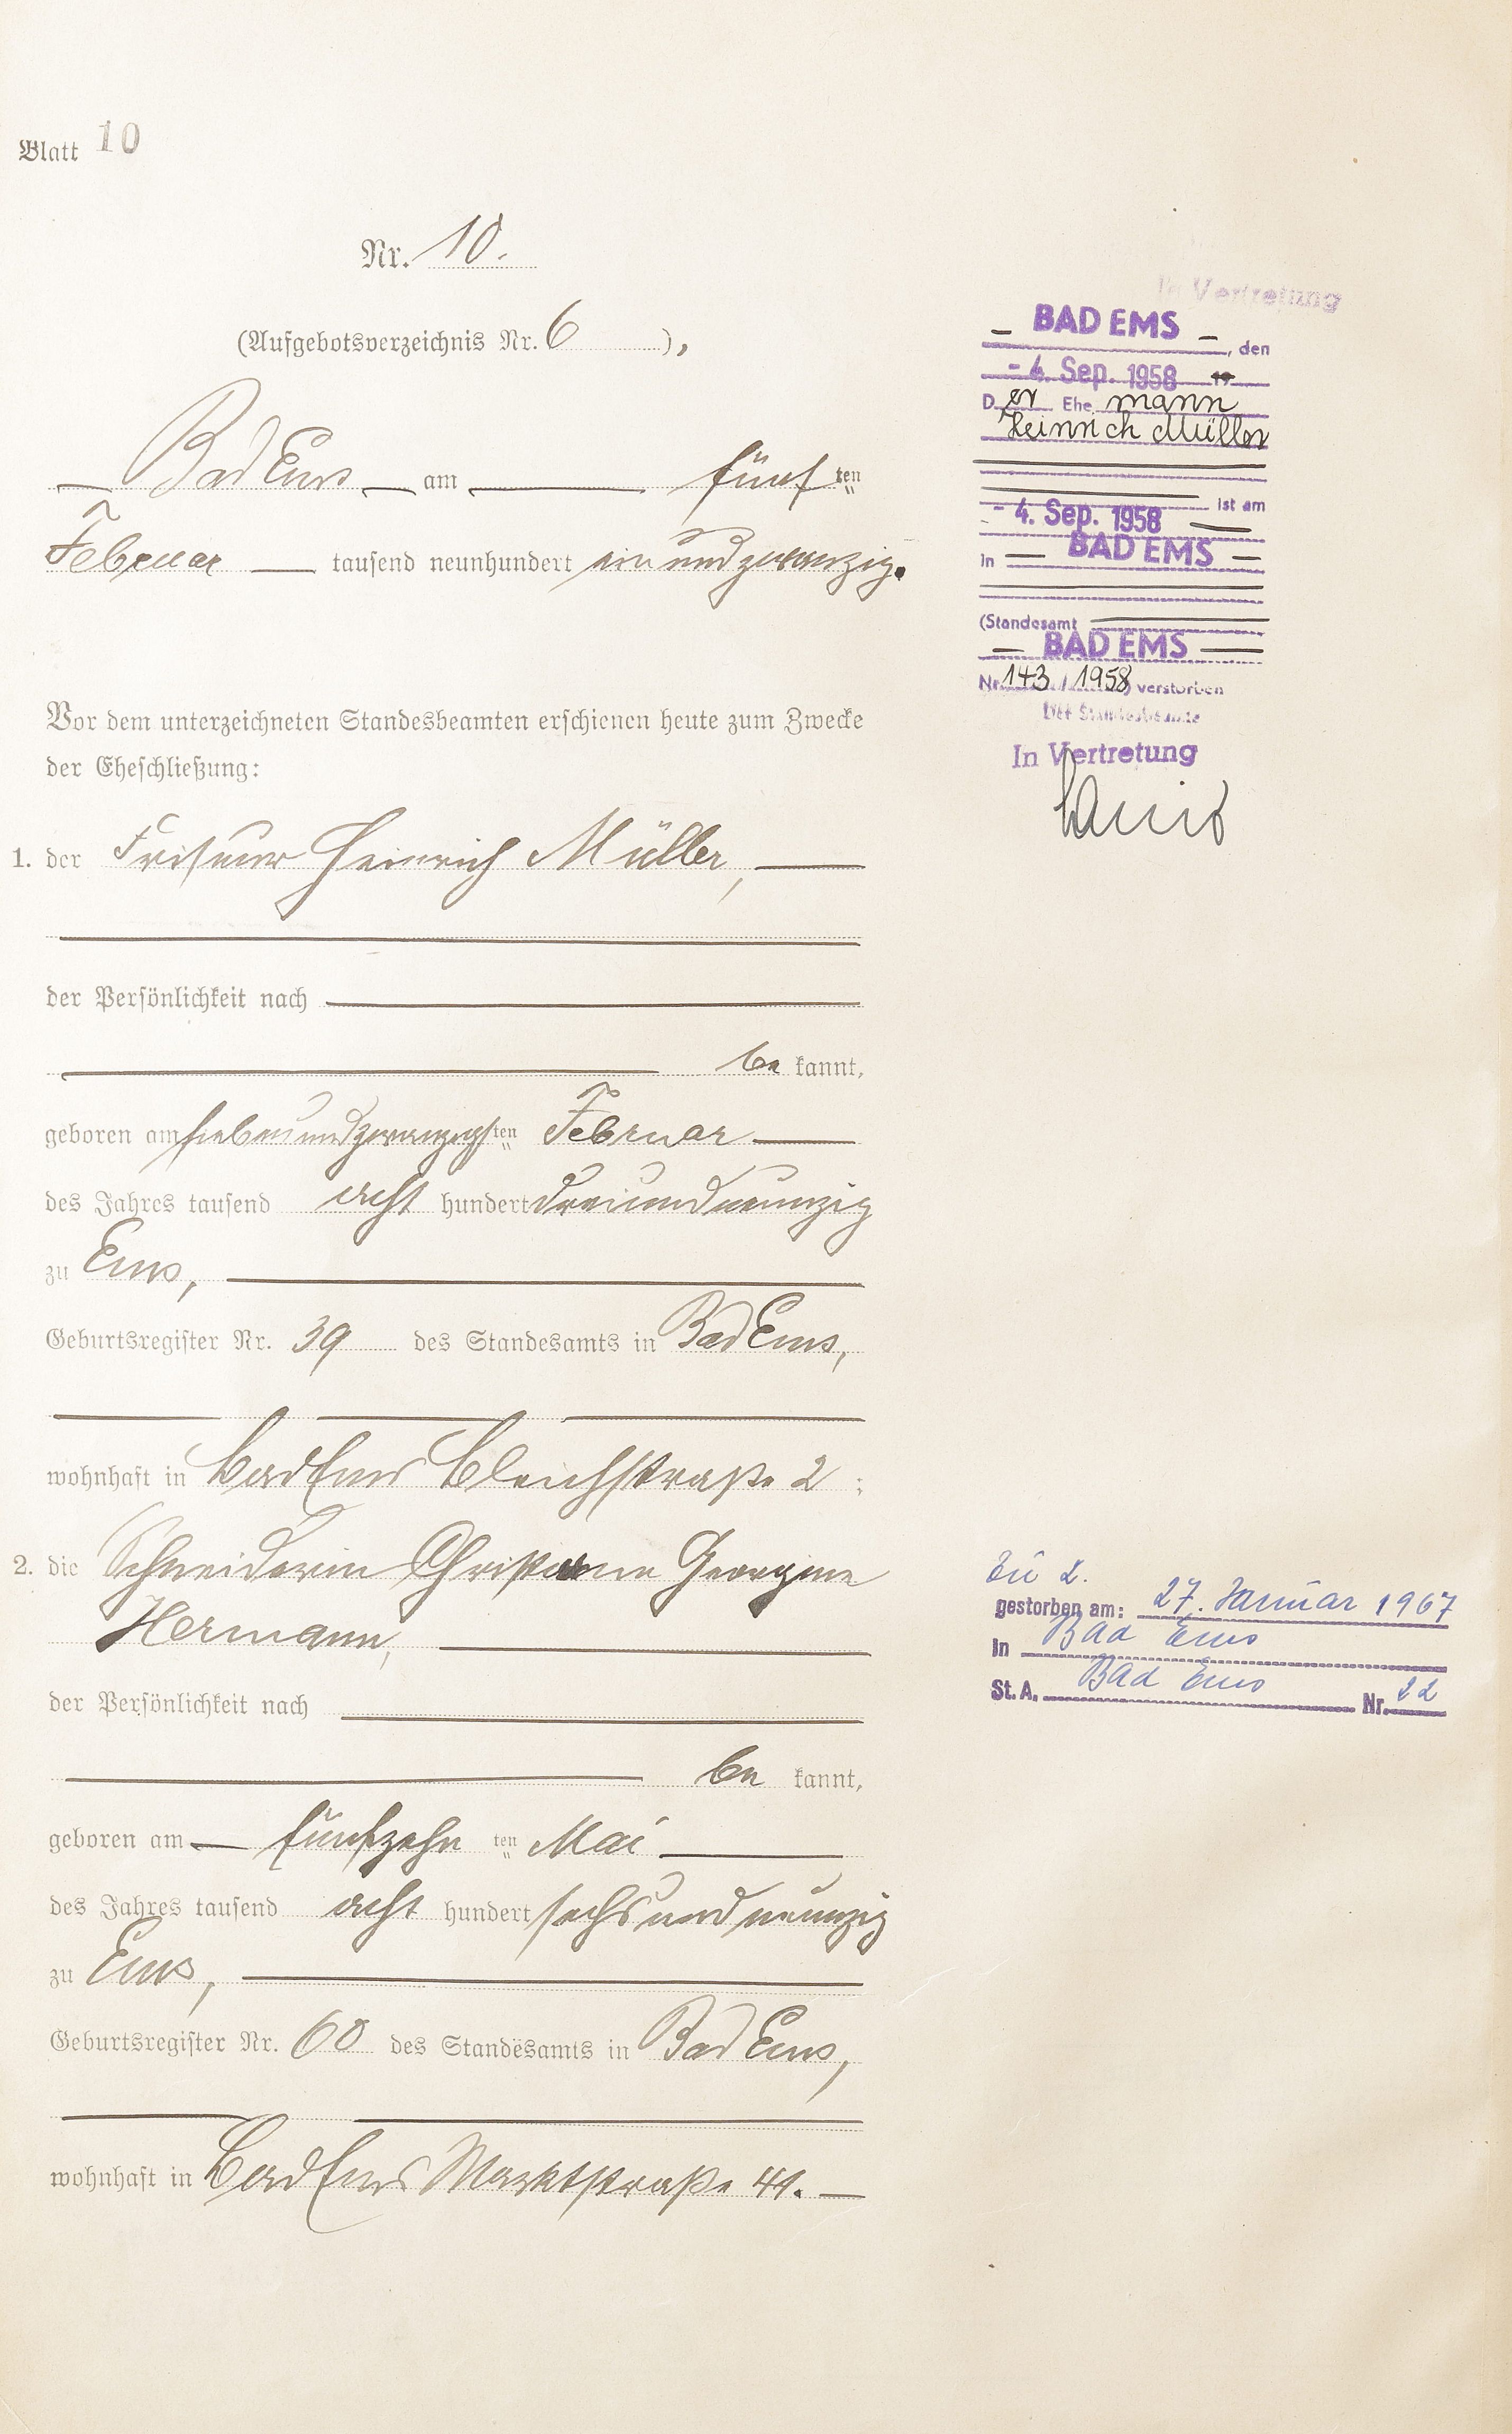 Blatt 10
Nr. 10.
(Aufgebotsverzeichnis Nr. 6 ),
Bad Ems am fünf ten
Februar tausend neunhundert ein und zwanzig.
Vor dem unterzeichneten Standesbeamten erschienen heute zum Zwecke
der Eheschließung:
1. der Friseur Heinrich Müller,
der Persönlichkeit nach
be kannt,
geboren am siebenundzwanzigsten Februar
des Jahres tausend acht hundert dreiundneunzig
zu Ems,
Geburtsregister Nr. 39 des Standesamts in Bad Ems,
wohnhaft in Bad Ems Bleichstraße 2;
2. die Schneiderin Christiane Georgine
Hermann,
der Persönlichkeit nach
be kannt,
geboren am fünfzehn ten Mai
des Jahres tausend acht hundert sechs und neunzig
zu Ems,
Geburtsregister Nr. 60 des Standesamts in Bad Ems,
wohnhaft in Bad Ems Marktstraße 41.
In Vertretung
BAD EMS, den
- 4. Sep. 1958 19
D er Ehe mann
Heinrich Müller
ist am
- 4. Sep. 1958
in BAD EMS
(Standesamt
BAD EMS
Nr. 143 / 1958) verstorben
Der Standesbeamte
In Vertretung
Zu 2.
gestorben am: 27. Januar 1967
in Bad Ems
St. A. Bad Ems Nr. 22